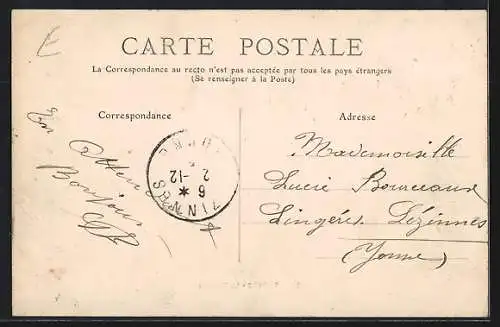 E
CARTE POSTALE
La Correspondance au recto n'est pas acceptée par tous les pays étrangers
(Se renseigner à la Poste)
Correspondance
Adresse
Bonjour
6 *
2-12
Mademoiselle
Lucie
Lingère Lézinnes
(Yonne)